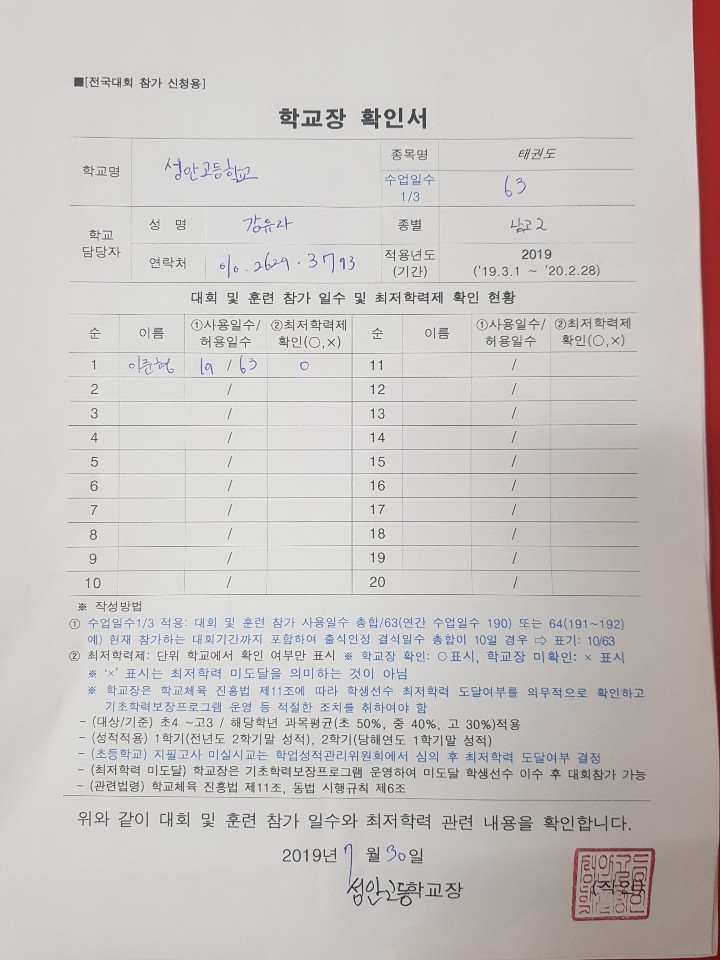 ■[전국대회 참가 신청용]
학교장 확인서
학교명 성안고등학교 종목명 태권도
수업일수 1/3 63
학교 담당자 성 명 강유라 종별 남고2
연락처 010.2629.3793 적용년도 (기간) 2019 ('19.3.1 ~ '20.2.28)
대회 및 훈련 참가 일수 및 최저학력제 확인 현황
순 이름 ①사용일수/허용일수 ②최저학력제 확인(○,×) 순 이름 ①사용일수/허용일수 ②최저학력제 확인(○,×)
1 이준형 19 / 63 ○ 11 /
2 / 12 /
3 / 13 /
4 / 14 /
5 / 15 /
6 / 16 /
7 / 17 /
8 / 18 /
9 / 19 /
10 / 20 /
※ 작성방법
① 수업일수1/3 적용: 대회 및 훈련 참가 사용일수 총합/63(연간 수업일수 190) 또는 64(191~192)
예) 현재 참가하는 대회기간까지 포함하여 출석인정 결석일수 총합이 10일 경우 ⇨ 표기: 10/63
② 최저학력제: 단위 학교에서 확인 여부만 표시 ※ 학교장 확인: ○표시, 학교장 미확인: × 표시
※ '×' 표시는 최저학력 미도달을 의미하는 것이 아님
※ 학교장은 학교체육 진흥법 제11조에 따라 학생선수 최저학력 도달여부를 의무적으로 확인하고
기초학력보장프로그램 운영 등 적절한 조치를 취하여야 함
- (대상/기준) 초4 ~고3 / 해당학년 과목평균(초 50%, 중 40%, 고 30%)적용
- (성적적용) 1학기(전년도 2학기말 성적), 2학기(당해연도 1학기말 성적)
- (초등학교) 지필고사 미실시교는 학업성적관리위원회에서 심의 후 최저학력 도달여부 결정
- (최저학력 미도달) 학교장은 기초학력보장프로그램 운영하여 미도달 학생선수 이수 후 대회참가 가능
- (관련법령) 학교체육 진흥법 제11조, 동법 시행규칙 제6조
위와 같이 대회 및 훈련 참가 일수와 최저학력 관련 내용을 확인합니다.
2019년 7 월 30일
성안고등학교장 (직인)